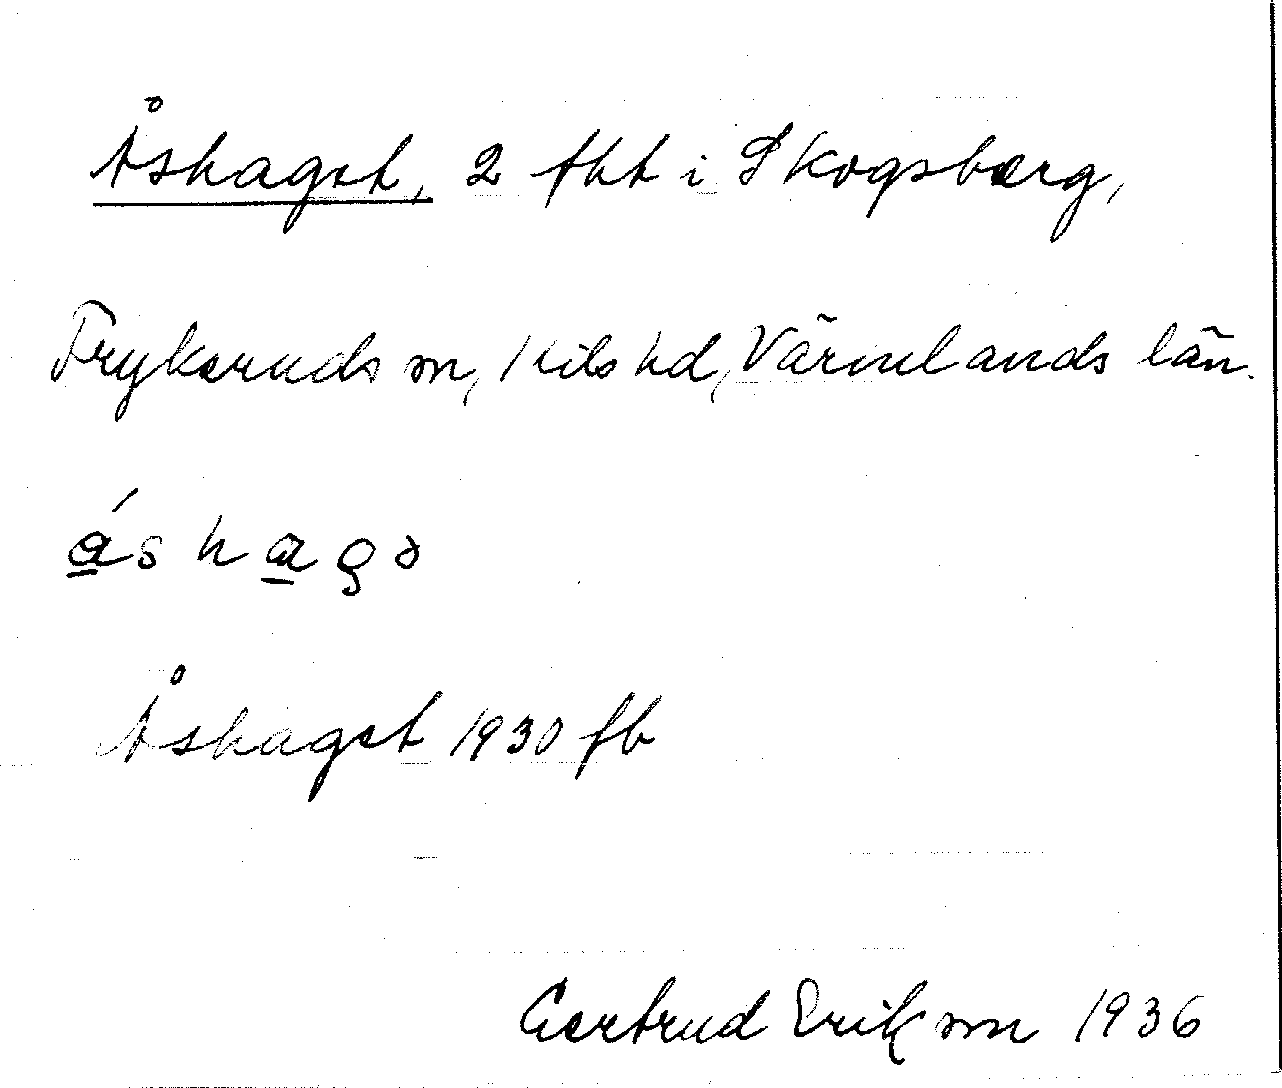 Åshaget, 2 tht i Skogsberg,
Frykeruds sn, Kils hd, Värmlands län.
Åshaget 1930 fb
Gertrud Erikson 1936